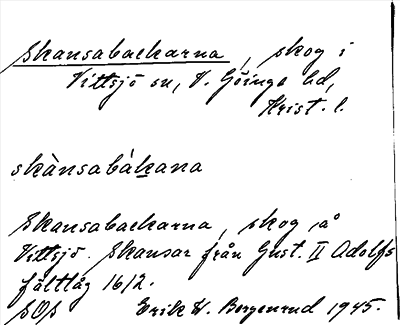 Skansabackarna, skog i
Vittsjö sn, V. Göinge hd,
Krist. l.
skànsabàkana
Skansabackarna, skog å
Vittsjö. Skansar från Gust. II Adolfs
fälttåg 1612.
SOS Erik W. Bergenrud 1945.